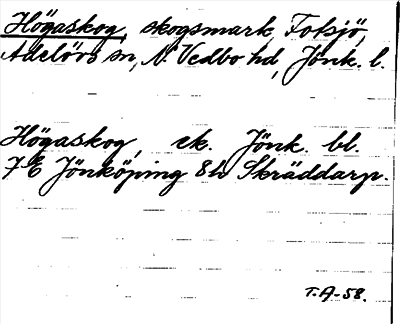 Högaskog, skogsmark, Fotsjö,
Adelövs sn, N. Vedbo hd, Jönk. l.
Högaskog, ek. Jönk. bl.
7E Jönköping 8h Skräddarp.
T.A-58.